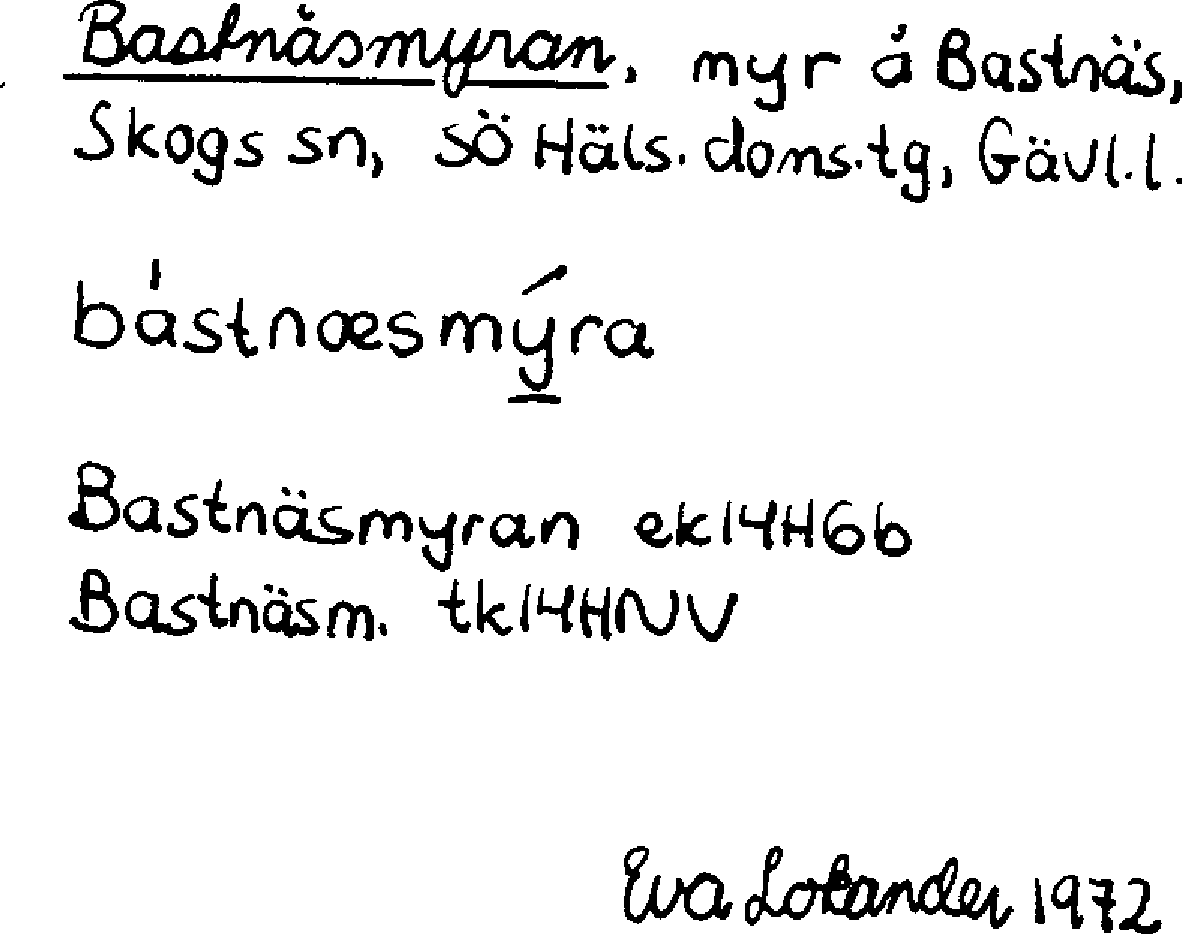 Bastnäsmyran, myr å Bastnäs,
Skogs sn, SÖ Häls. doms.tg, Gävl.l.
bástnæsmý̱ra
Bastnäsmyran ek14H6b
Bastnäsm. tk14HNV
Eva Lokander 1972